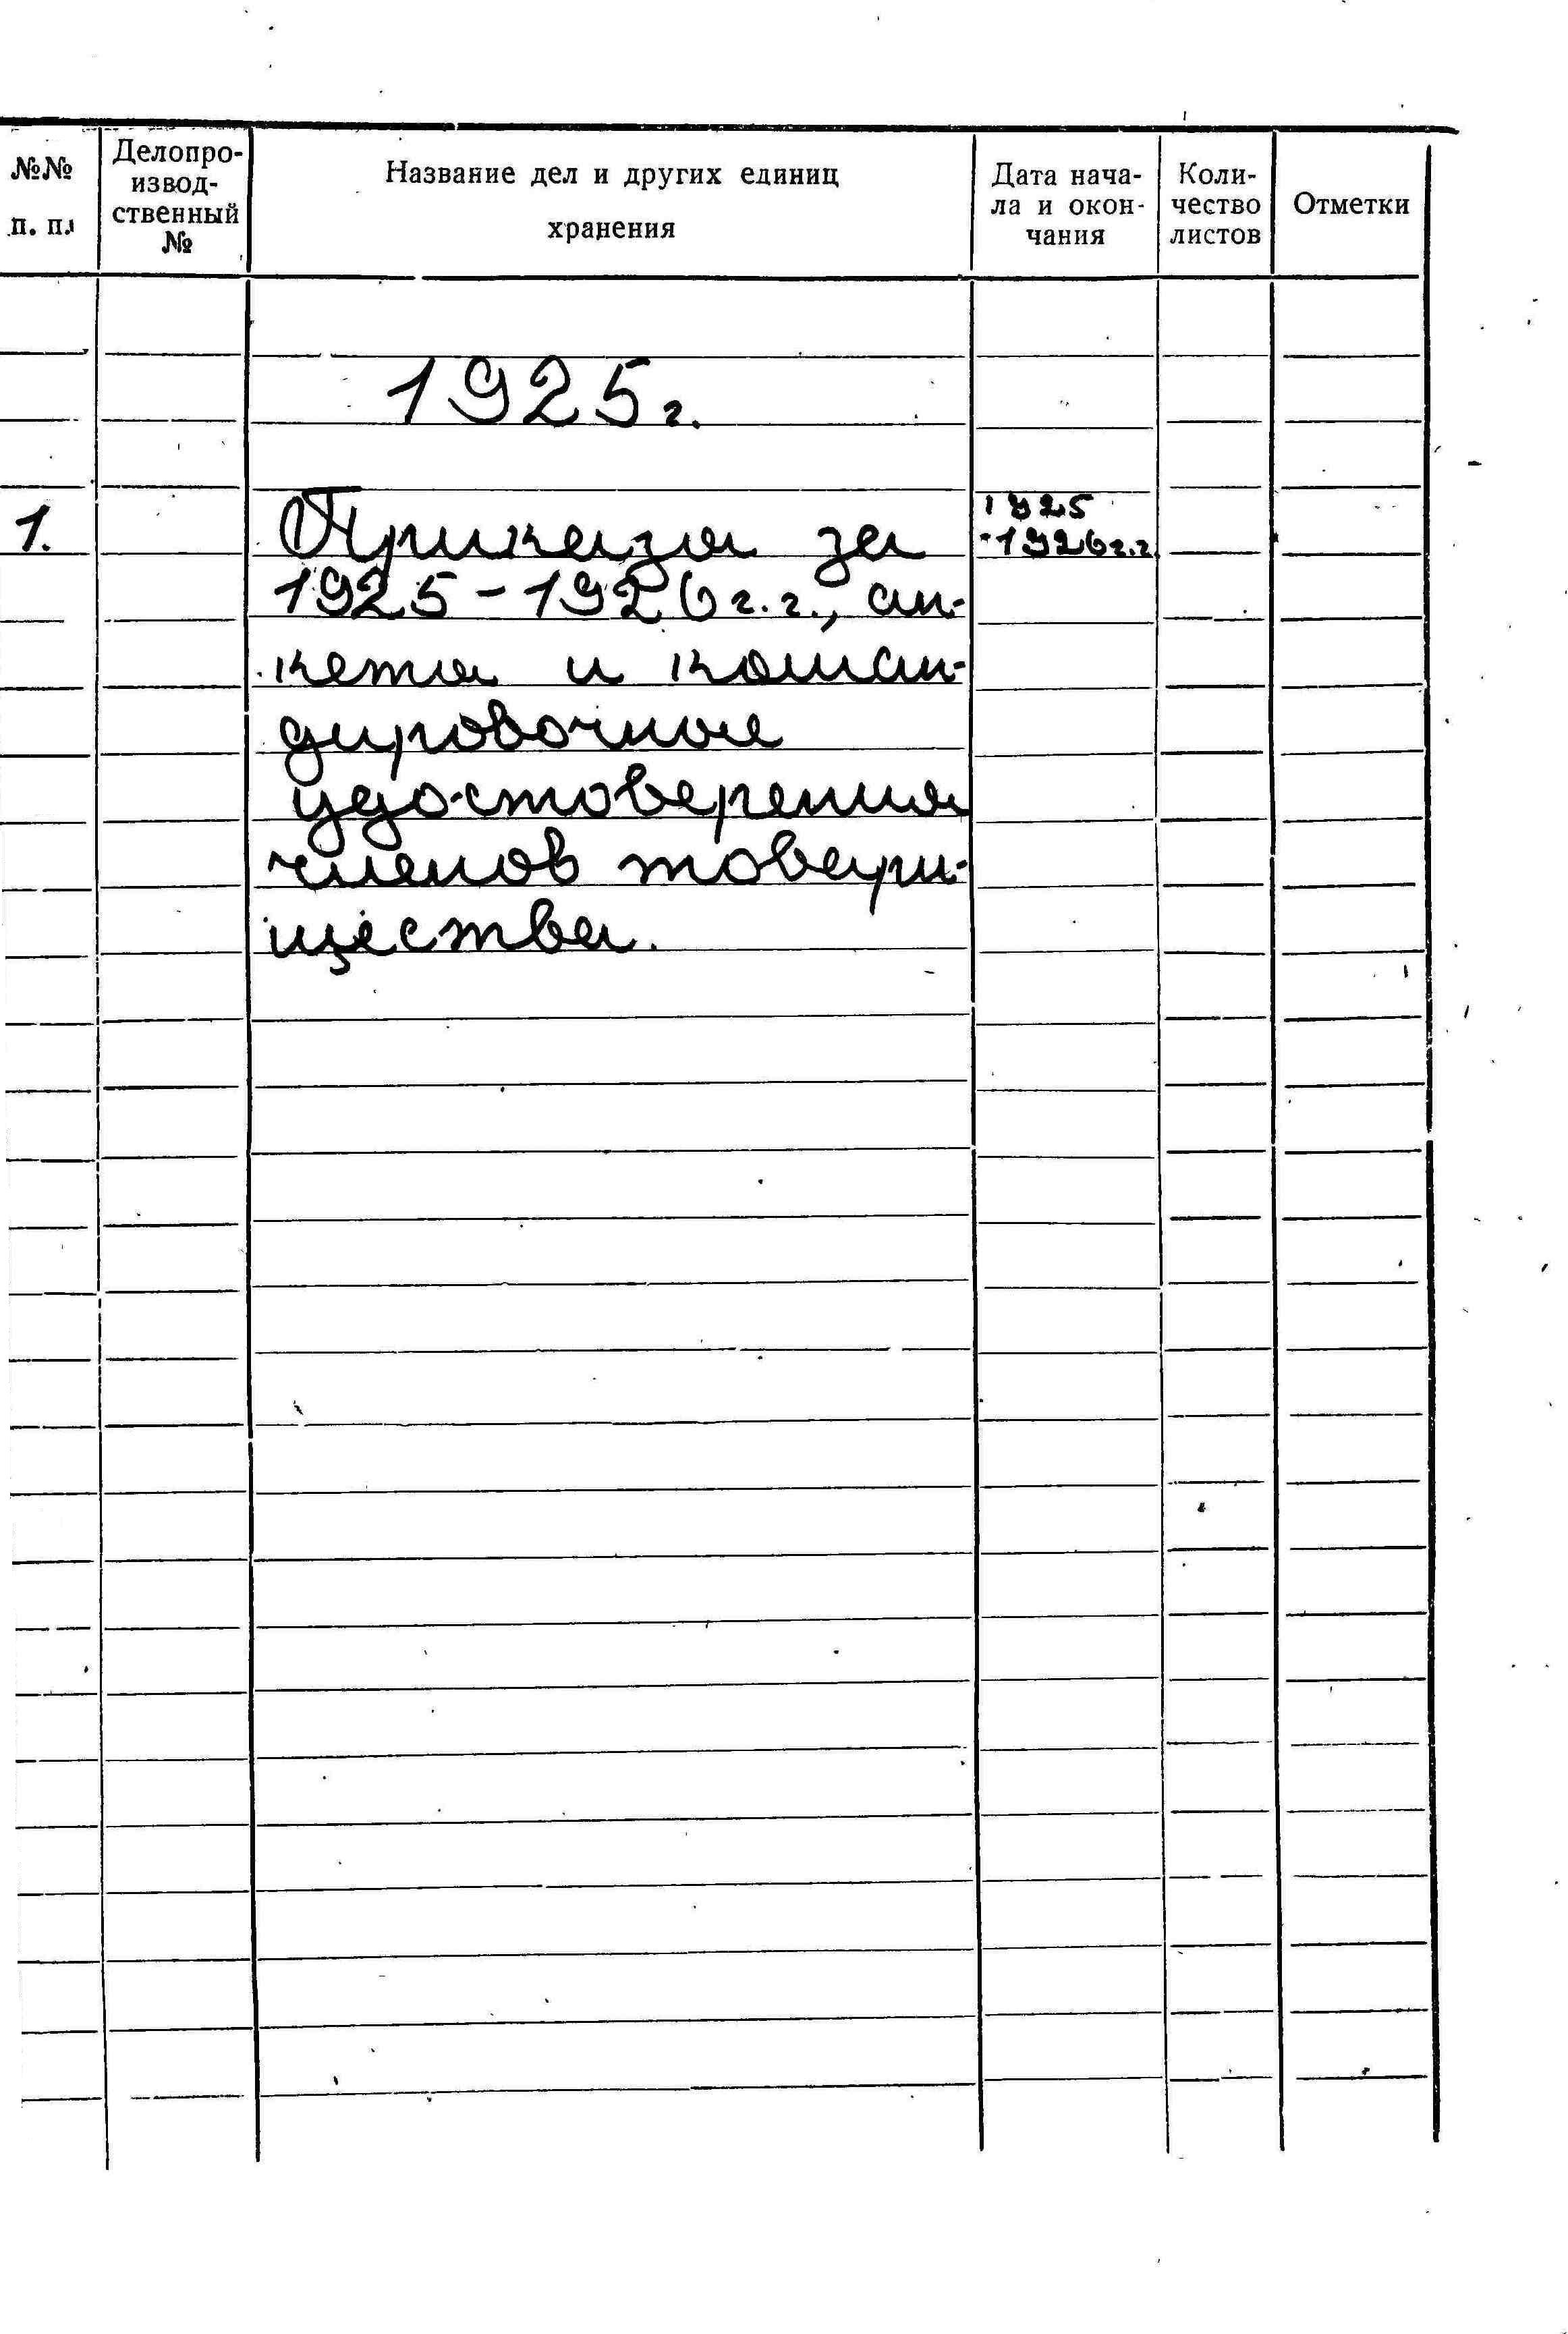 №№
п. п.
Делопро-
извод-
ственный
№
Название дел и других единиц
хранения
Дата нача-
ла и окон-
чания
Коли-
чество
листов
Отметки
1925г.
1.
Приказы за
1925-1926г.г., ан-
кеты и коман-
дировочные
удостоверения
членов товари-
щества.
1925
-1926г.г.